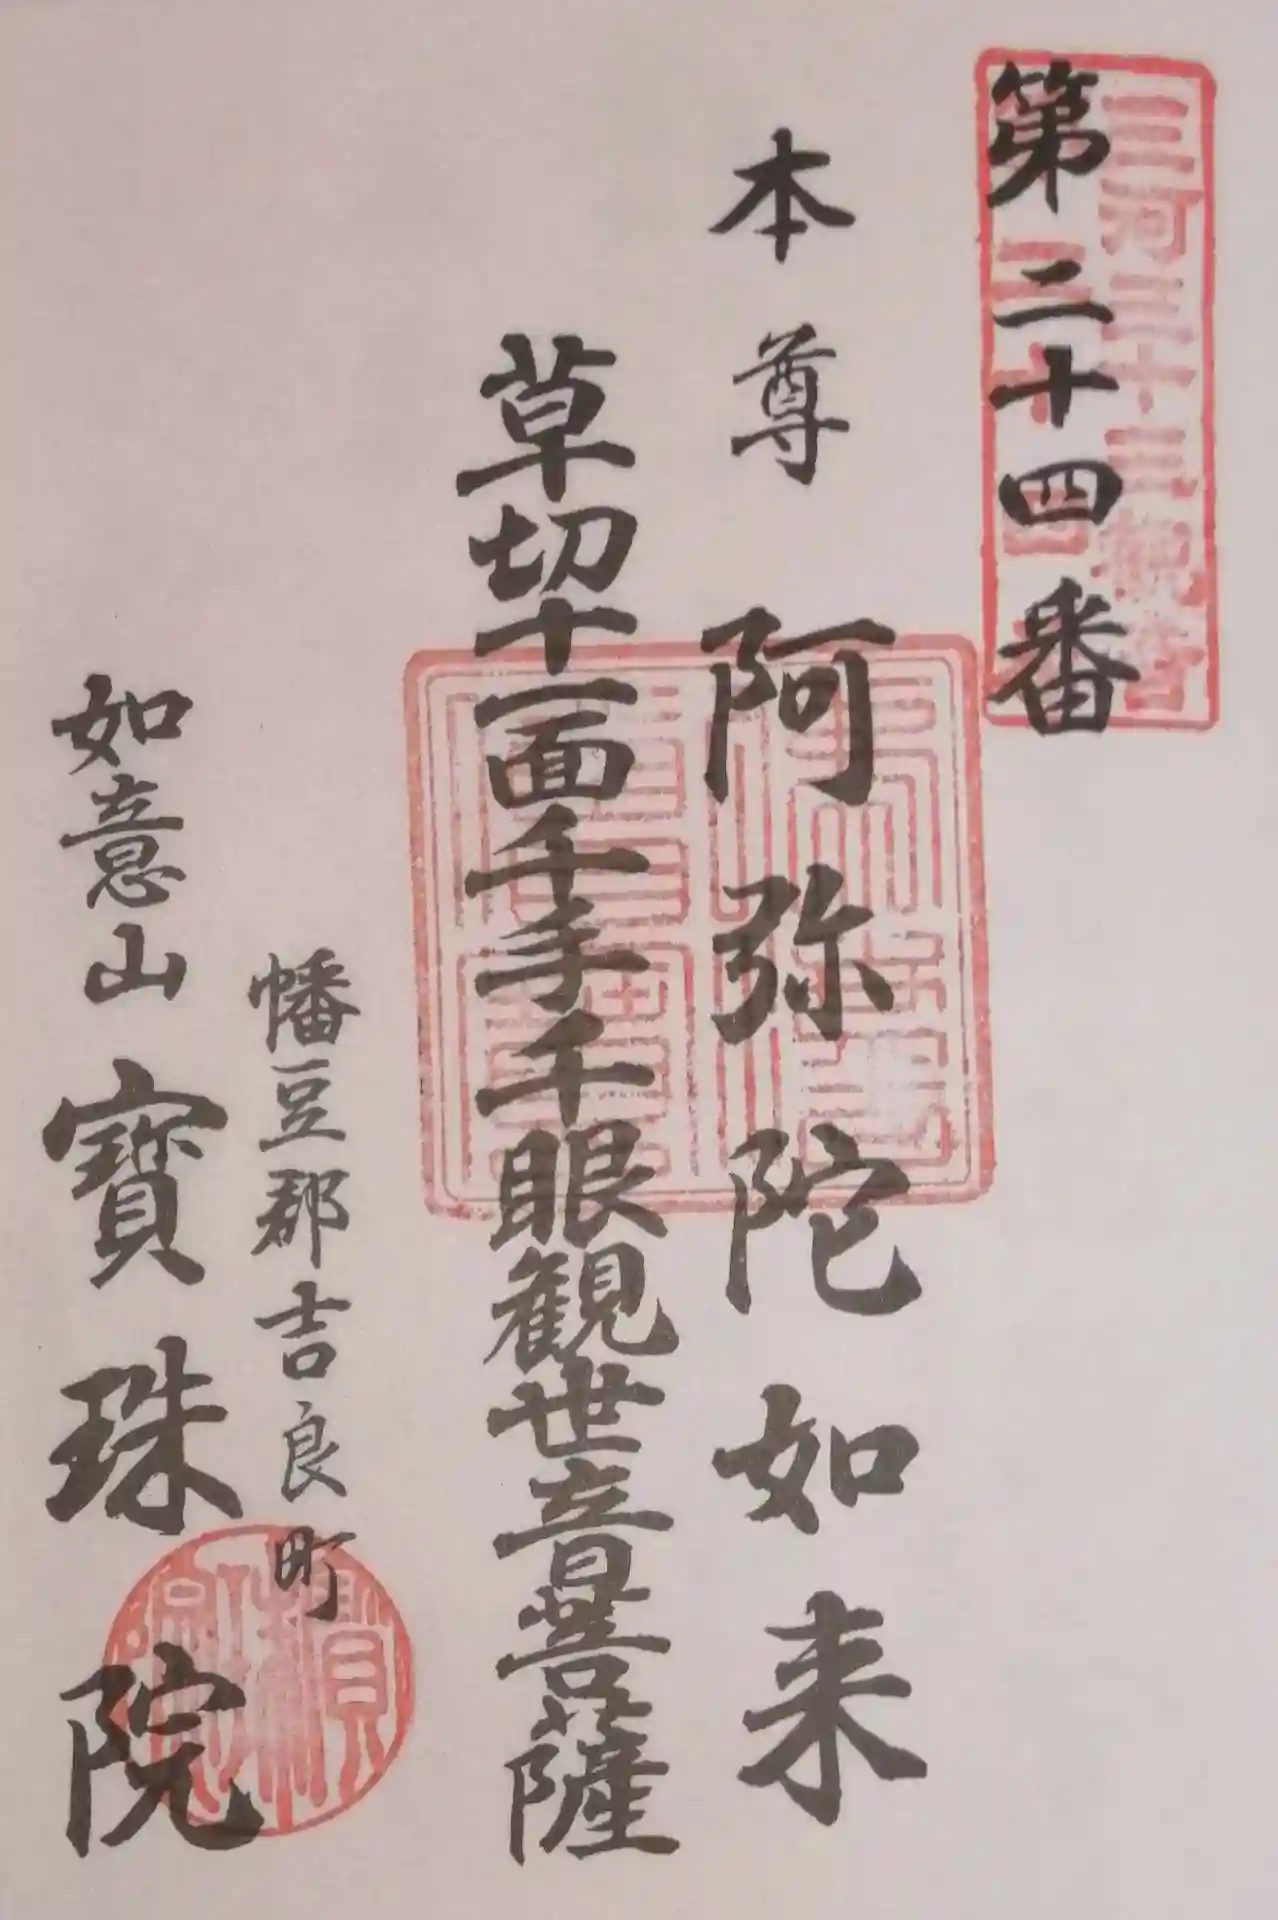 三河三十三観音
第二十四番
本尊 阿弥陀如来
草切十一面千手千眼観世音菩薩
幡豆郡吉良町
如意山 寶珠院